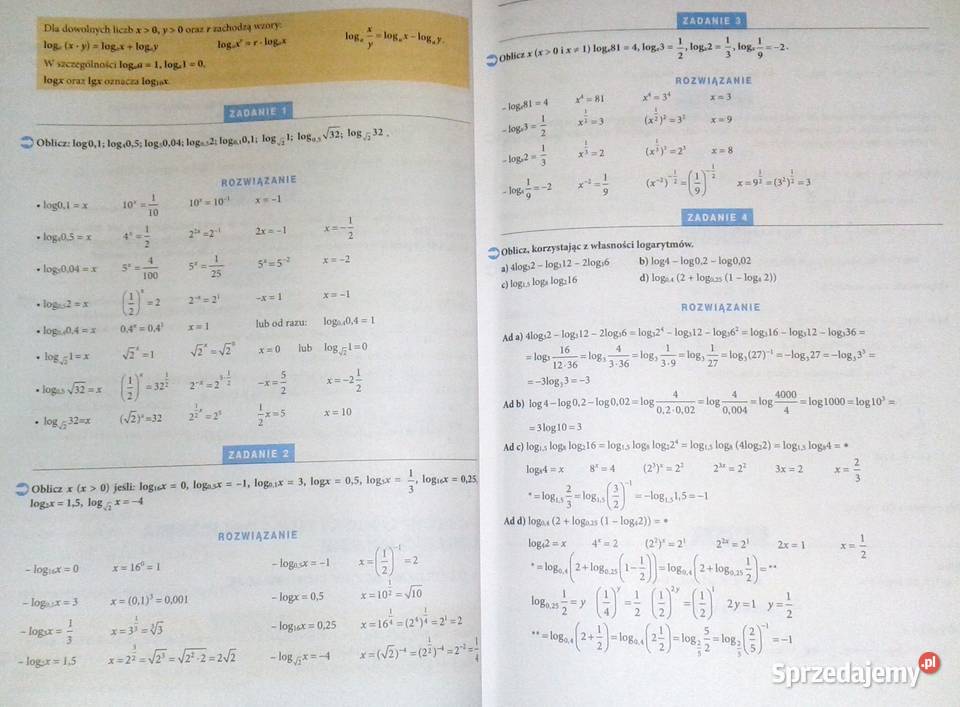 Dla dowolnych liczb x > 0, y > 0 oraz r zachodzą wzory:
logₐ (x · y) = logₐx + logₐy    logₐxʳ = r · logₐx    logₐ x/y = logₐx − logₐy.
W szczególności logₐa = 1, logₐ1 = 0,
logx oraz lgx oznacza log₁₀x.
ZADANIE 1
Oblicz: log0,1; log₄0,5; log₅0,04; log₀,₅2; log₀,₁0,1; log_√2 1; log₀,₅ √32; log_√2 32 .
ROZWIĄZANIE
• log0,1 = x    10ˣ = 1/10    10ˣ = 10⁻¹    x = −1
• log₄0,5 = x    4ˣ = 1/2    2²ˣ = 2⁻¹    2x = −1    x = −1/2
• log₅0,04 = x    5ˣ = 4/100    5ˣ = 1/25    5ˣ = 5⁻²    x = −2
• log₀,₅2 = x    (1/2)ˣ = 2    2⁻ˣ = 2¹    −x = 1    x = −1
• log₀,₄0,4 = x    0,4ˣ = 0,4¹    x = 1    lub od razu:    log₀,₄0,4 = 1
• log_√2 1 = x    √2ˣ = 1    √2ˣ = √2⁰    x = 0    lub    log_√2 1 = 0
• log₀,₅ √32 = x    (1/2)ˣ = 32^(1/2)    2⁻ˣ = 2^(5·1/2)    −x = 5/2    x = −2 1/2
• log_√2 32=x    (√2)ˣ=32    2^(1/2 x) = 2⁵    1/2 x = 5    x = 10
ZADANIE 2
Oblicz x (x > 0) jeśli: log₁₆x = 0, log₀,₅x = −1, log₀,₁x = 3, logx = 0,5, log₃x = 1/3, log₁₆x = 0,25
log₂x = 1,5, log_√2 x = −4
ROZWIĄZANIE
– log₁₆x = 0    x = 16⁰ = 1    – log₀,₅x = −1    x = (1/2)⁻¹ = 2
– log₀,₁x = 3    x = (0,1)³ = 0,001    – logx = 0,5    x = 10^(1/2) = √10
– log₃x = 1/3    x = 3^(1/3) = ∛3    – log₁₆x = 0,25    x = 16^(1/4) = (2⁴)^(1/4) = 2¹ = 2
– log₂x = 1,5    x = 2^(3/2) = √2³ = √2²·2 = 2√2    – log_√2 x = −4    x = (√2)⁻⁴ = (2^(1/2))⁻⁴ = 2⁻² = 1/4
ZADANIE 3
Oblicz x (x > 0 i x ≠ 1) logₓ81 = 4, logₓ3 = 1/2, logₓ2 = 1/3, logₓ 1/9 = −2.
ROZWIĄZANIE
– logₓ81 = 4    x⁴ = 81    x⁴ = 3⁴    x = 3
– logₓ3 = 1/2    x^(1/2) = 3    (x^(1/2))² = 3²    x = 9
– logₓ2 = 1/3    x^(1/3) = 2    (x^(1/3))³ = 2³    x = 8
– logₓ 1/9 = −2    x⁻² = 1/9    (x⁻²)^(−1/2) = (1/9)^(−1/2)    x = 9^(1/2) = (3²)^(1/2) = 3
ZADANIE 4
Oblicz, korzystając z własności logarytmów.
a) 4log₃2 − log₃12 − 2log₃6    b) log4 − log0,2 − log0,02
c) log₁,₅ log₈ log₂16    d) log₀,₄ (2 + log₀,₂₅ (1 − log₄ 2))
ROZWIĄZANIE
Ad a) 4log₃2 − log₃12 − 2log₃6 = log₃2⁴ − log₃12 − log₃6² = log₃16 − log₃12 − log₃36 =
= log₃ 16/(12·36) = log₃ 4/(3·36) = log₃ 1/(3·9) = log₃ 1/27 = log₃(27)⁻¹ = −log₃27 = −log₃3³ =
= −3log₃3 = −3
Ad b) log4 − log0,2 − log0,02 = log 4/(0,2·0,02) = log 4/0,004 = log 4000/4 = log1000 = log10³ =
= 3log10 = 3
Ad c) log₁,₅ log₈ log₂16 = log₁,₅ log₈ log₂2⁴ = log₁,₅ log₈ (4log₂2) = log₁,₅ log₈4 = *
log₈4 = x    8ˣ = 4    (2³)ˣ = 2²    2³ˣ = 2²    3x = 2    x = 2/3
* = log₁,₅ 2/3 = log₁,₅ (3/2)⁻¹ = −log₁,₅1,5 = −1
Ad d) log₀,₄ (2 + log₀,₂₅ (1 − log₄2)) = *
log₄2 = x    4ˣ = 2    (2²)ˣ = 2¹    2²ˣ = 2¹    2x = 1    x = 1/2
* = log₀,₄ (2 + log₀,₂₅ (1 − 1/2)) = log₀,₄ (2 + log₀,₂₅ 1/2) = **
log₀,₂₅ 1/2 = y    (1/4)ʸ = 1/2    (1/2)²ʸ = (1/2)¹    2y = 1    y = 1/2
** = log₀,₄ (2 + 1/2) = log₀,₄ (2 1/2) = log_(2/5) 5/2 = log_(2/5) (2/5)⁻¹ = −1
Sprzedajemy.pl